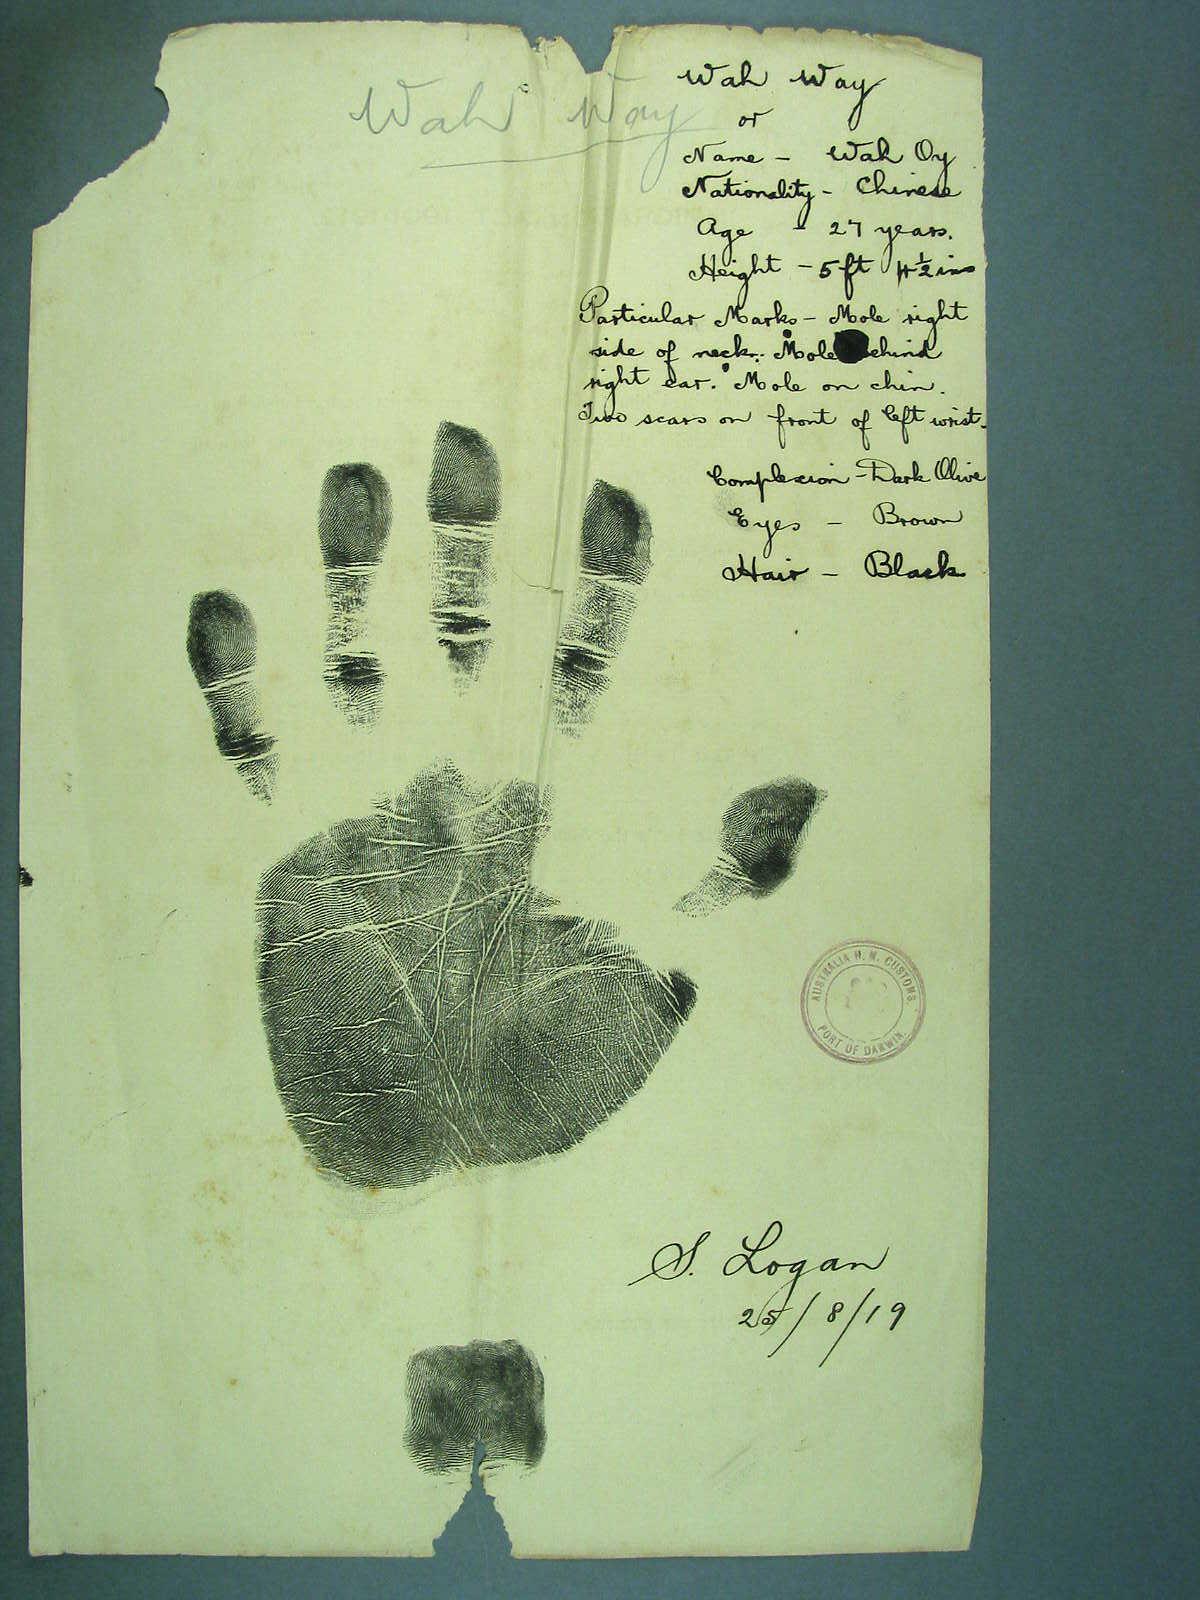 Wah Way
Wah Way
or
Name - Wah Oy
Nationality - Chinese
Age - 27 years.
Height - 5 ft 4 ½ ins
Particular Marks - Mole right
side of neck. Mole behind
right ear. Mole on chin.
Two scars on front of left wrist.
Complexion - Dark Olive
Eyes - Brown
Hair - Black
AUSTRALIA H. M. CUSTOMS
PORT OF DARWIN
S. Logan
25/8/19